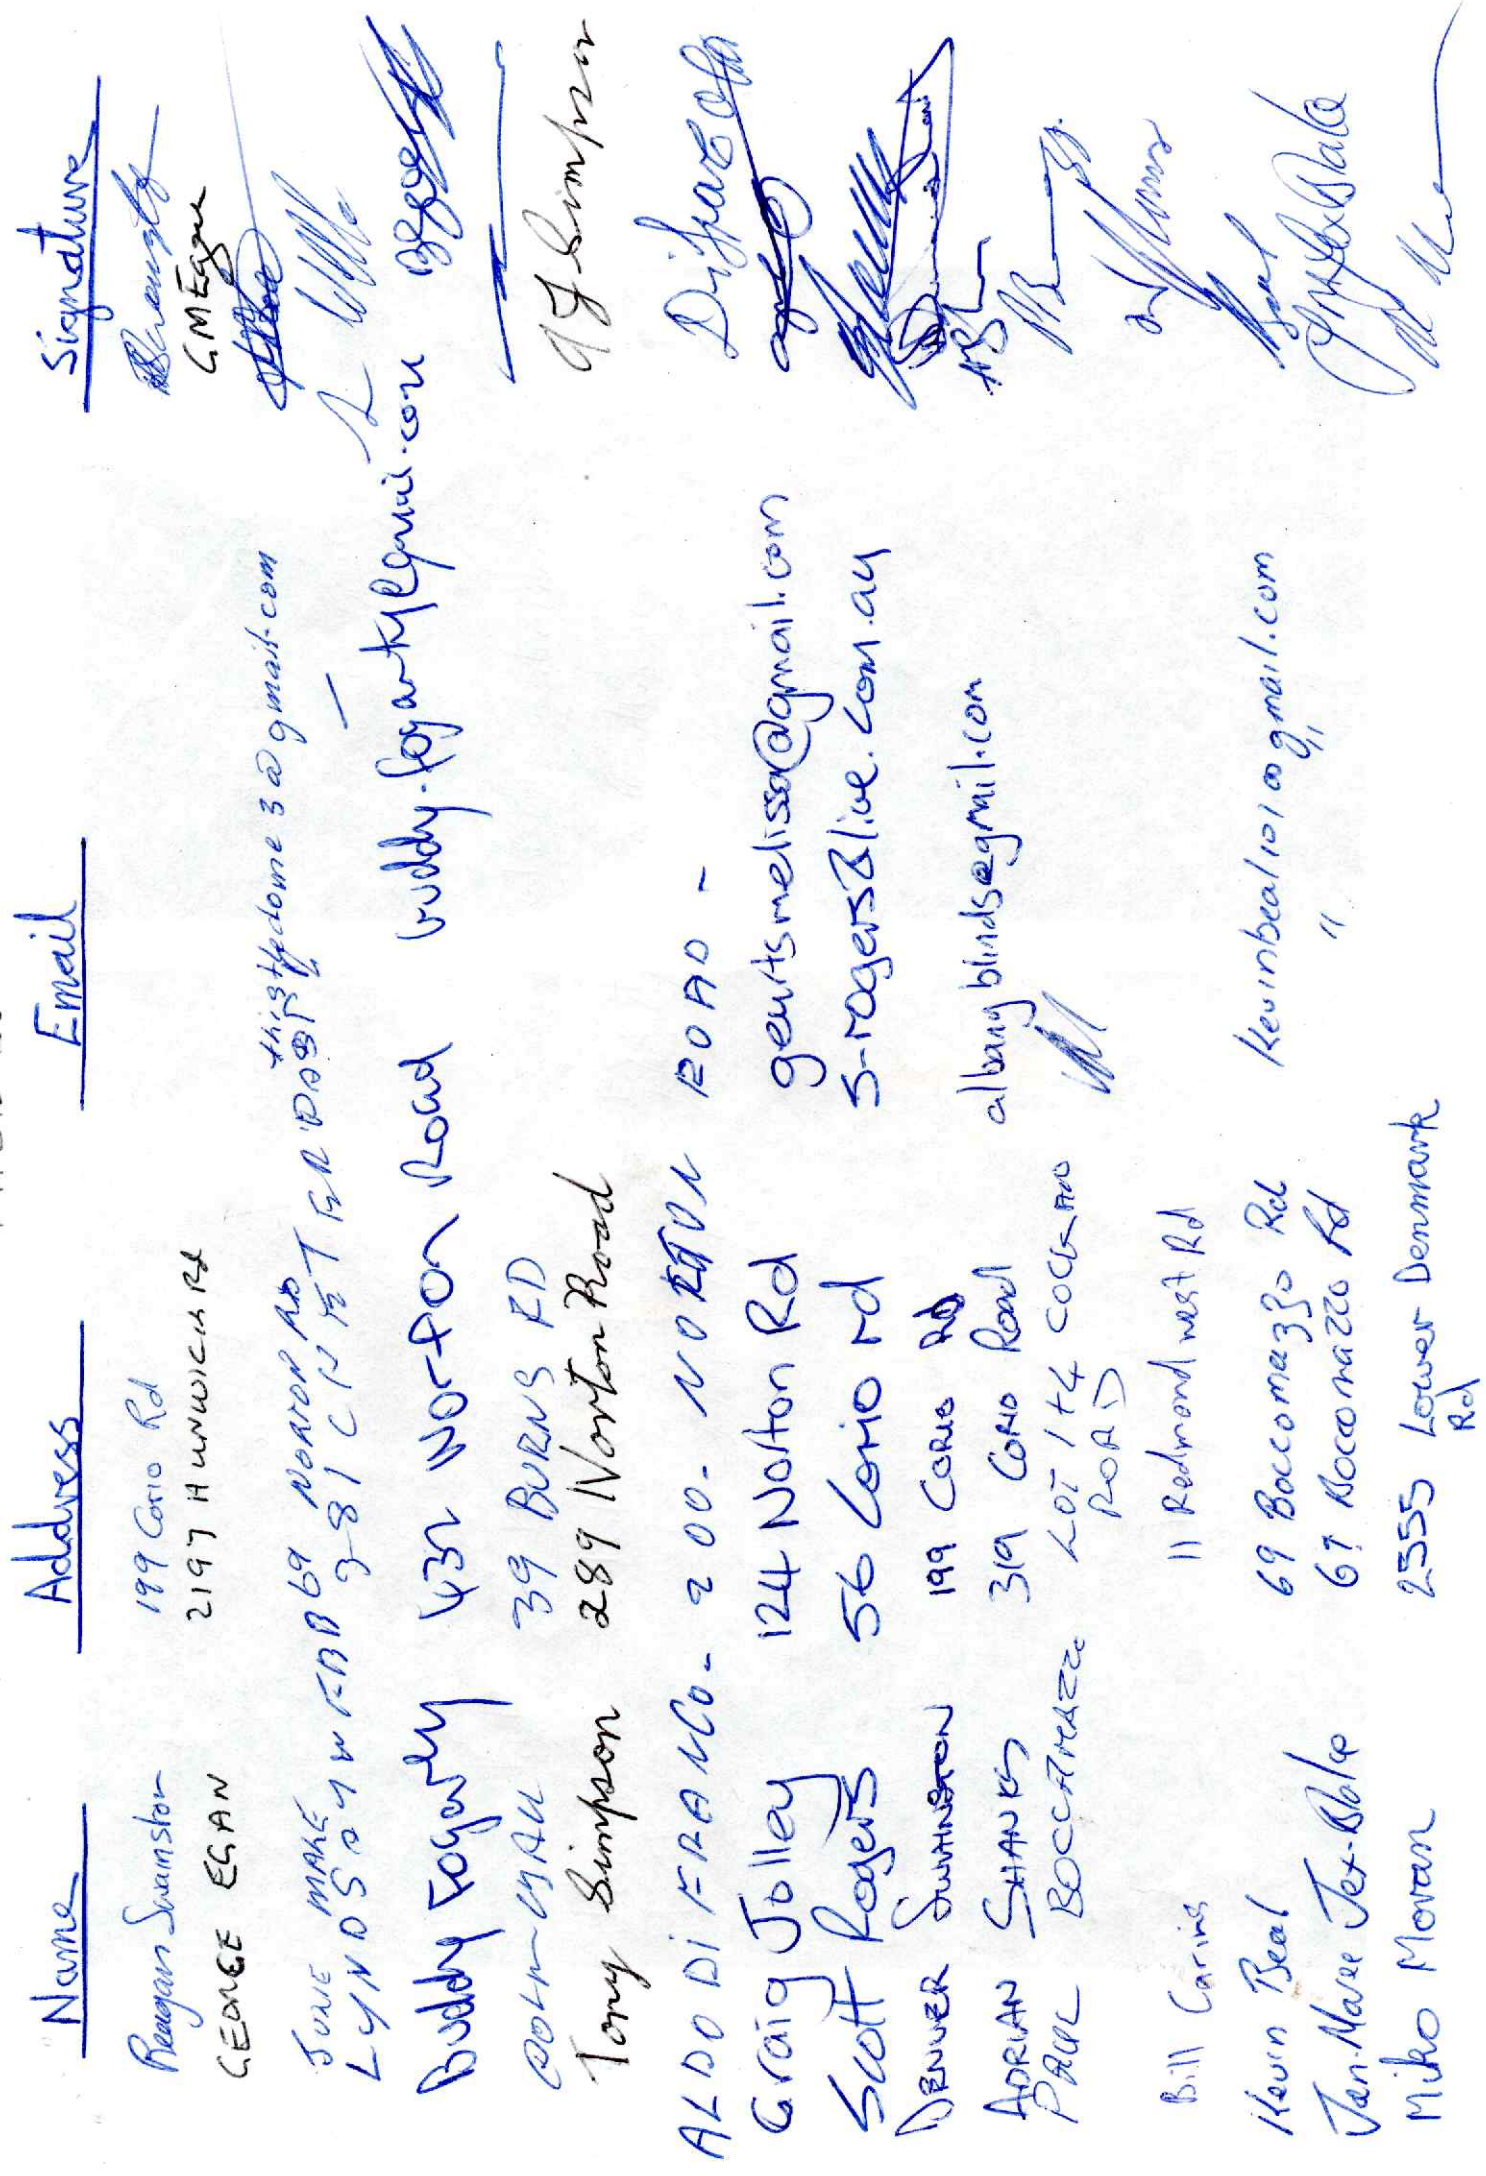 Name Address Email Signature
Reagan Swanston 199 Corio Rd
GEORGE EGAN 2197 HUNWICK RD GMEgan
JUNE MAKE 69 NORTON RD thistledome3@gmail.com
LYNDSAY WEBB
Buddy Fogarty 432 Norton Road buddy.fogarty@gmail.com
39 BURNS RD
Tony Simpson 289 Norton Road Simpson
ALDO DI FRANCO - 200 - NORTON ROAD -
Craig Jolley 124 Norton Rd geurtsmelissa@gmail.com
Scott Rogers 56 Corio rd s-rogers@live.com.au
DENVER SWANSTON 199 CORIO RD
ADRIAN SHANKS 319 CORIO Road albanyblinds@gmail.com
PAUL BOCCAMAZZO LOT 1+4
ROAD
Bill Carins 11 Redmond west Rd
Kevin Beal 69 Boccamazzo Rd Kevinbeal10100gmail.com
Jan-Maree Jex-Blake 69 Boccamazzo Rd "
Miko Moran 2555 Lower Denmark
Rd